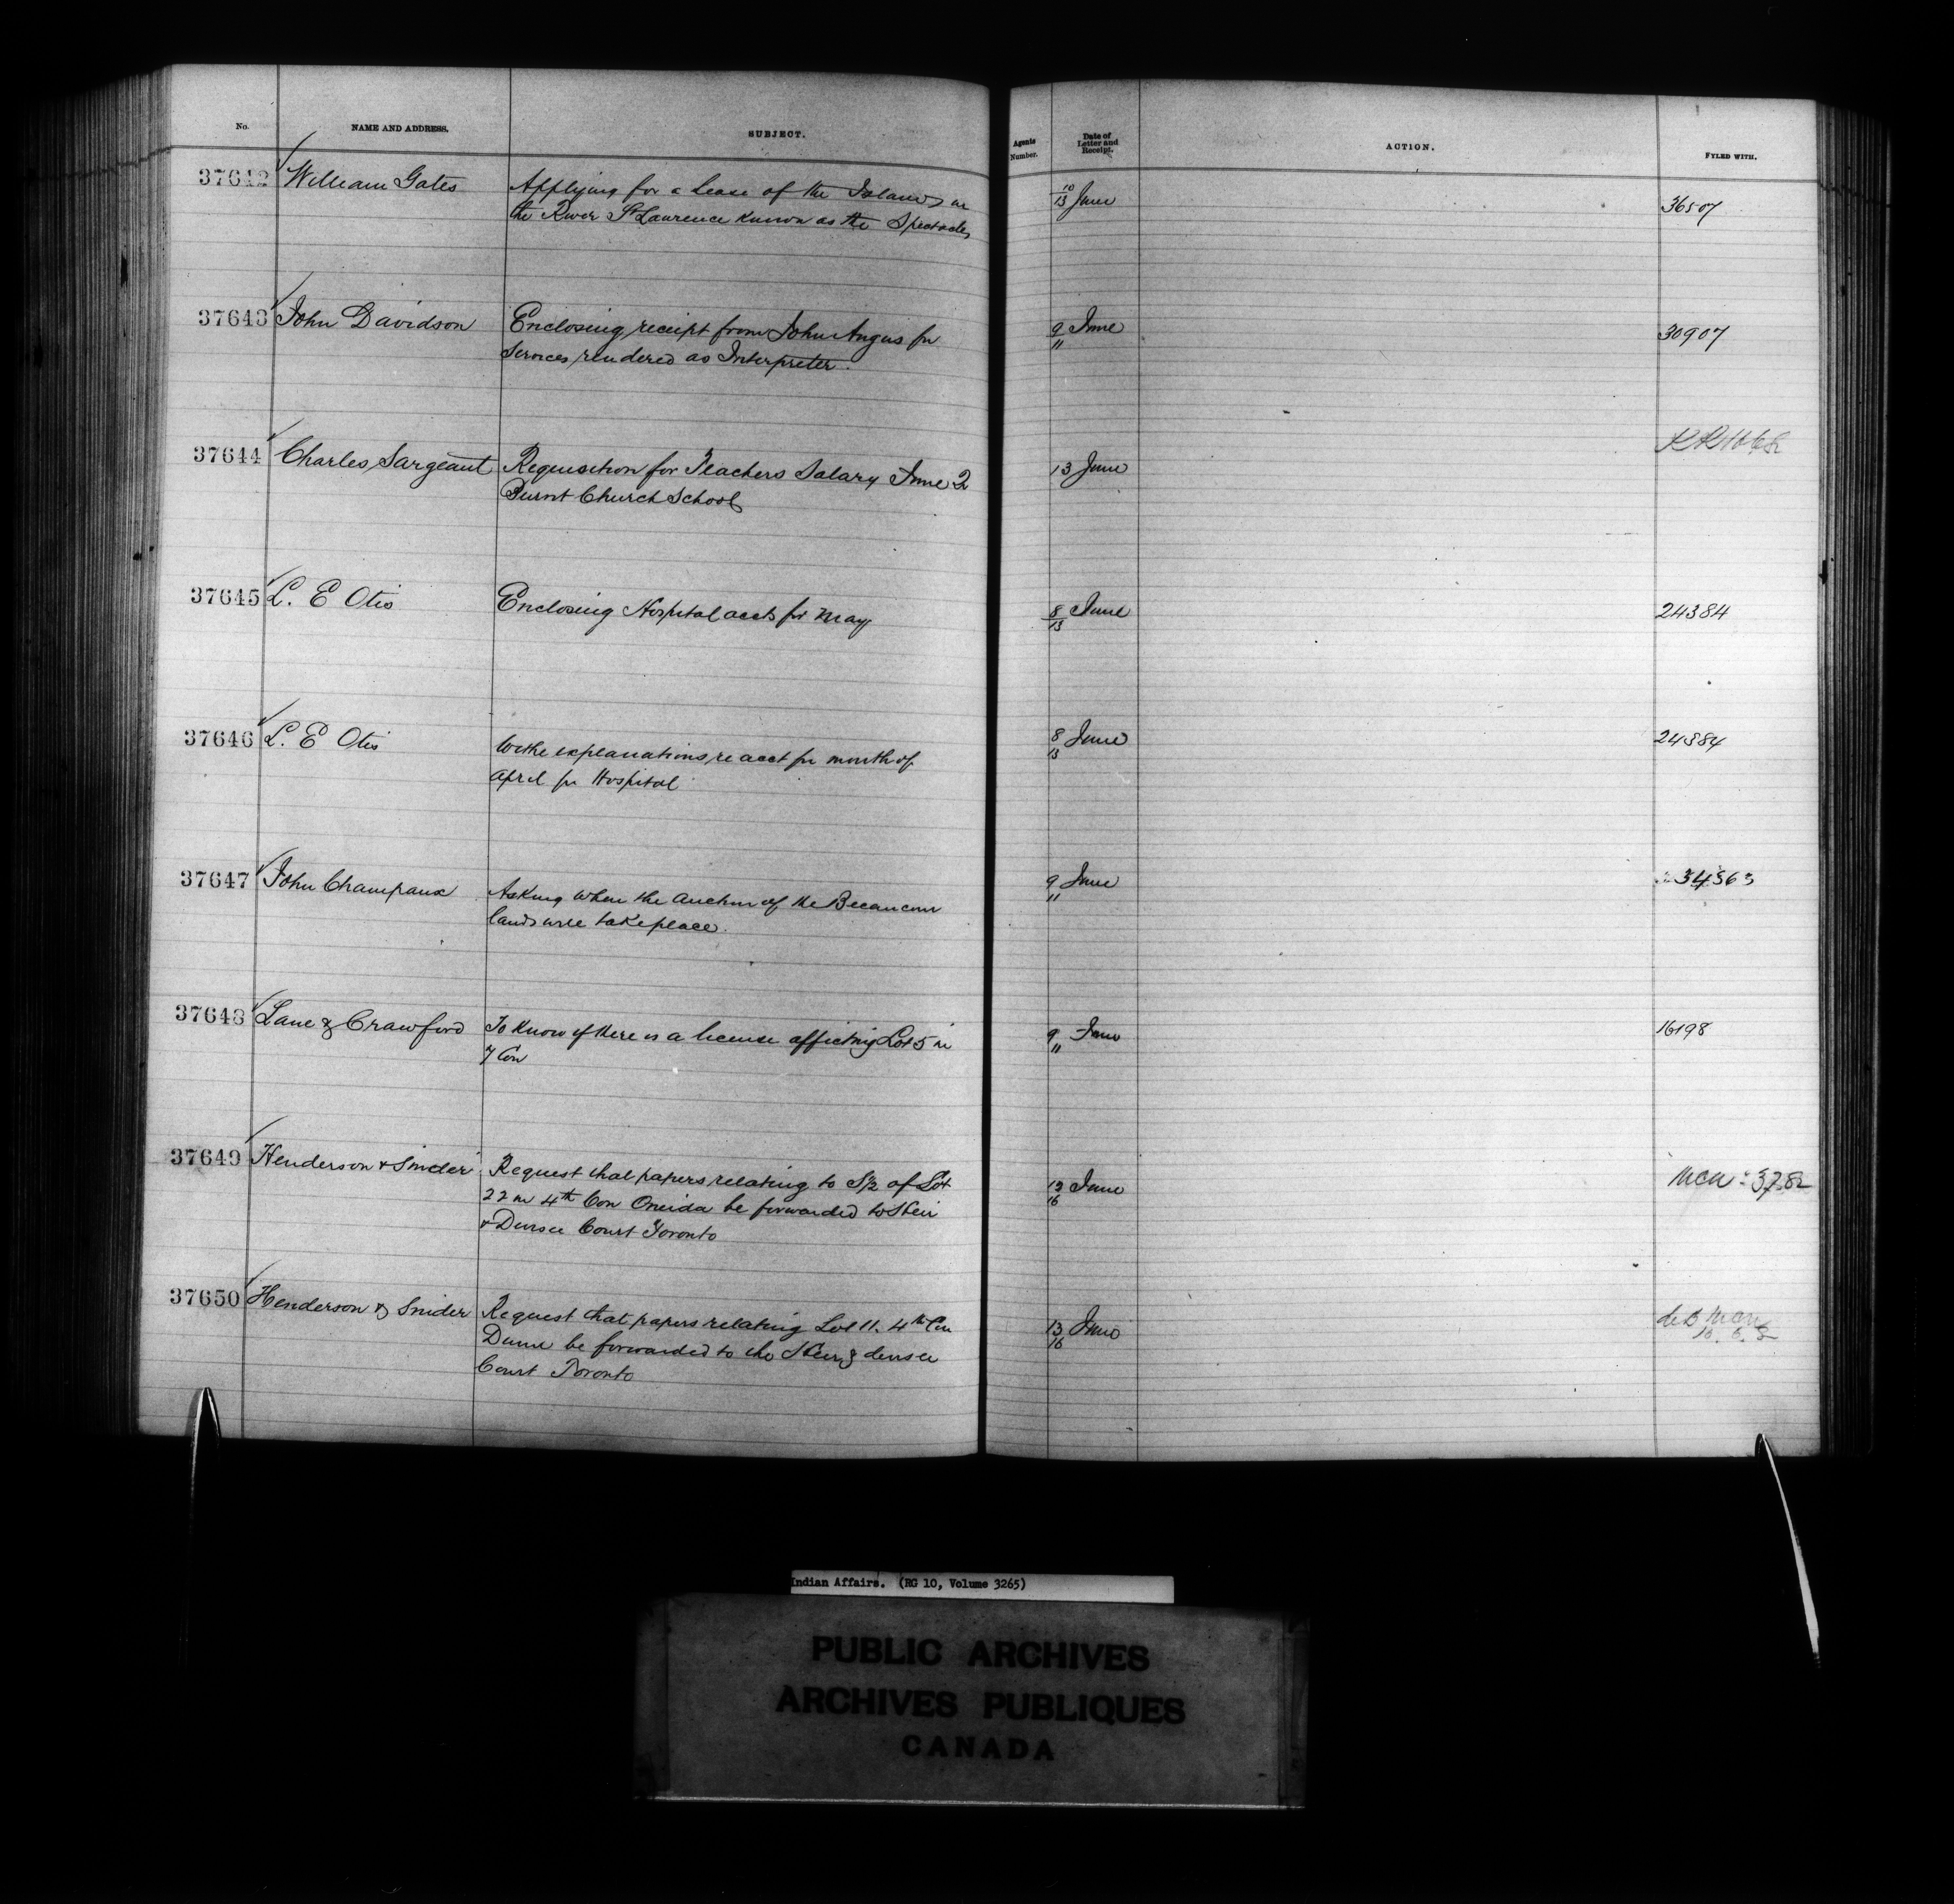 No. NAME AND ADDRESS. SUBJECT. Agents Number. Date of Letter and Receipt. ACTION. FYLED WITH.
37642 William Gates Applying for a Lease of the Islands in 10/13 June 36507
the River St Lawrence known as the Spectacles
37643 John Davidson Enclosing receipt from John Angus for 9/11 June 30907
services rendered as Interpreter.
37644 Charles Sargeant Requisition for Teachers Salary June 2 13 June
Burnt Church School
37645 L. E Otis Enclosing Hospital accts for May 8/13 June 24384
37646 L. E Otis explanations re acct for month of 8/13 June 24384
April for Hospital
37647 John Champaux Asking when the Auction of the Becancour 9/11 June 34363
lands will take place.
37648 Lane & Crawford To know if there is a license affecting Lot 5 in 9/11 June 16198
7 Con
37649 Henderson & Snider Request that papers relating to S½ of Lot June
22 in 4th Con Oneida be forwarded to Heir
& Devisee Court Toronto
37650 Henderson & Snider Request that papers relating Lot 11. 4th Con 13/16 June
Dunn be forwarded to the Heir & devisee
Court Toronto
Indian Affairs. (RG 10, Volume 3265)
PUBLIC ARCHIVES
ARCHIVES PUBLIQUES
CANADA